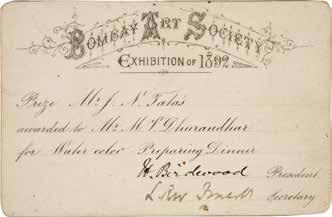 BOMBAY ART SOCIETY
EXHIBITION OF 1892
Prize Mr J. N. Tata's
awarded to Mr M. V. Dhurandhar
for Water color Preparing Dinner
H. Birdwood President
Secretary